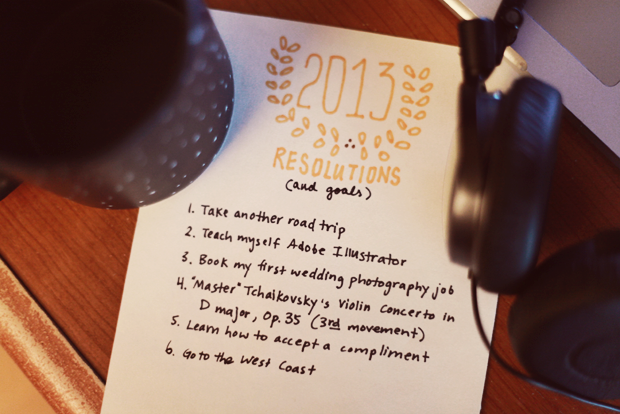 2013
RESOLUTIONS
(and goals)
1. Take another road trip
2. Teach myself Adobe Illustrator
3. Book my first wedding photography job
4. "Master" Tchaikovsky's Violin Concerto in
D major, Op. 35 (3rd movement)
5. Learn how to accept a compliment
6. Go to the West Coast